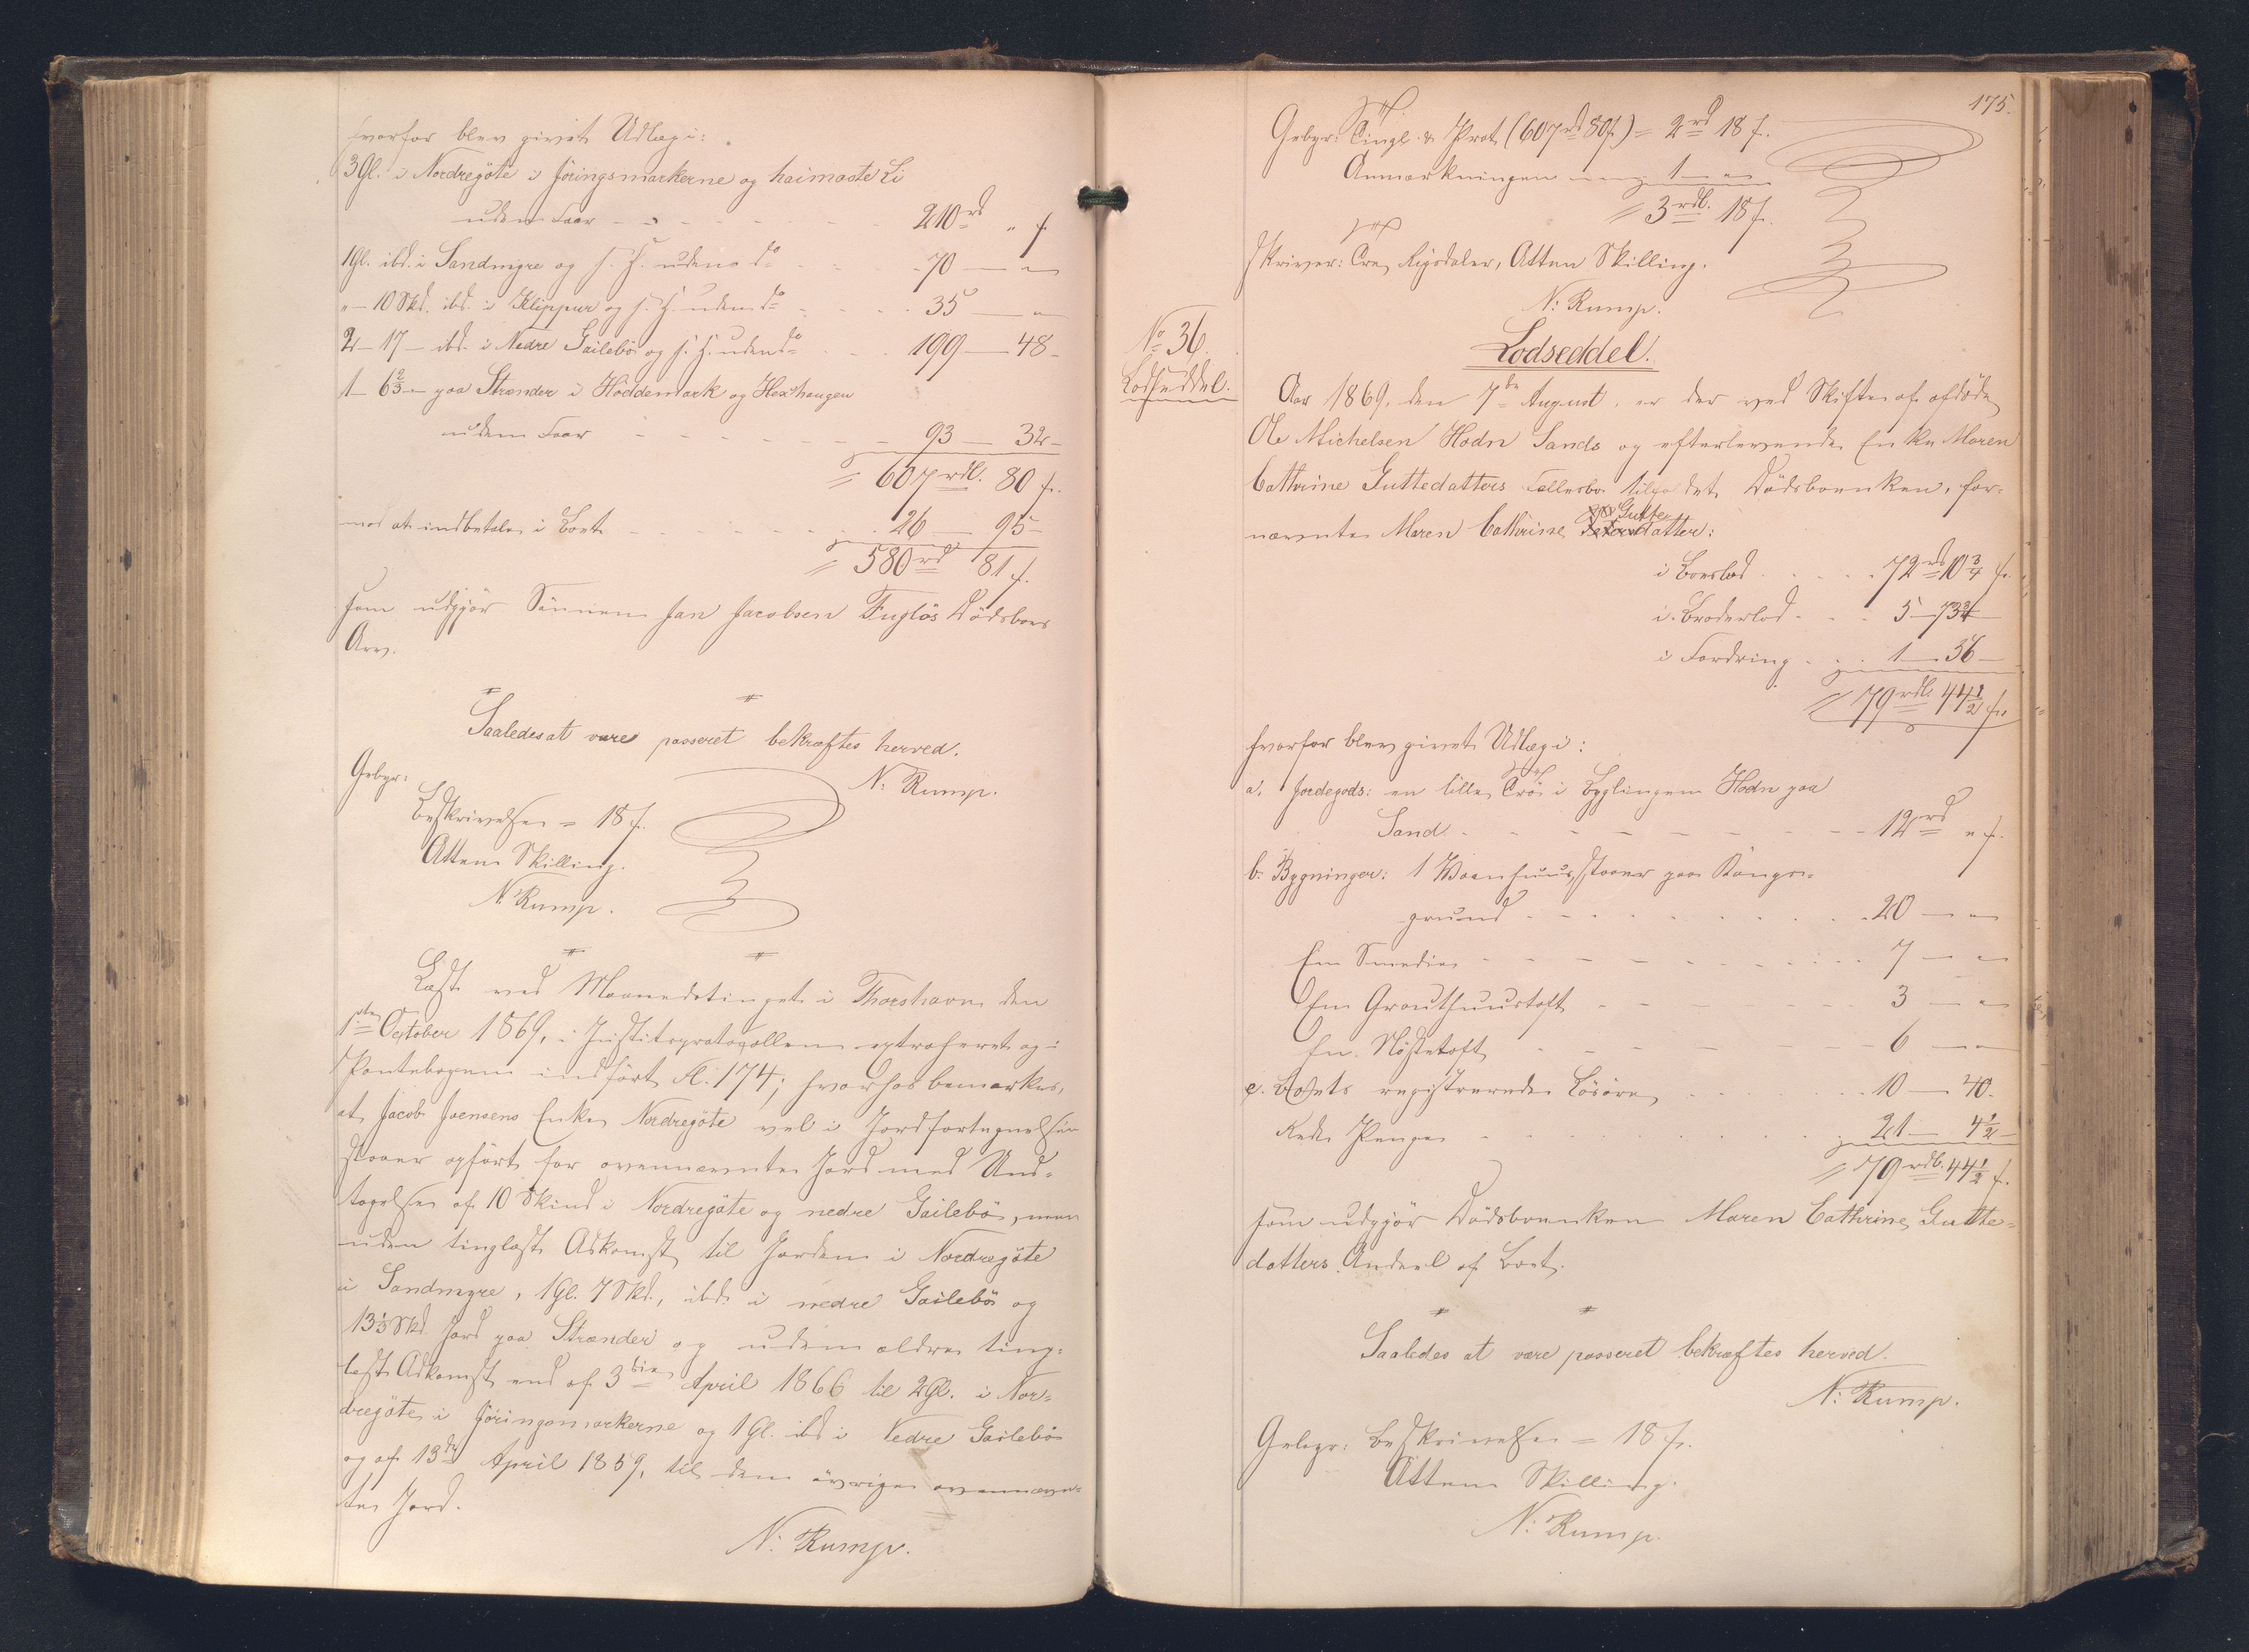 hvorfor blev givet Udlæg i:
3 Gl. i Nordregöte i Jöringsmarkerne og haimaste Li
uden Faar - - - 210 rd " f
1 Gl. ibd. i Sandmyre og s. H. uden do - 70 — "
" - 10 Skd. ibd. i Klippur og s. H. uden do - 35 — "
2 - 17 - ibd. i Nedre Gailebö og s. H. uden do - 199 — 48 -
1 - 6 2/3 - paa Strænder i Höddemark og Hexhaugen
uden Faar - - - 93 — 32 -
= 607 rdl. 80 f.
mod at indbetale i Boet - - - 26 — 95 -
= 580 rd 81 f.
som udgjör Sönnen Jan Jacobsen Fuglös Dödsboes
Arv.
Saaledes at være passeret bekræftes herved.
N: Rump.
Gebyr:
Beskrivelsen = 18 f.
Atten Skilling.
N. Rump.
Læst ved Maanedstinget i Thorshavn den
1ste October 1869, i Justitsprotocollen extraheret og i
Pantebogen indfört Fl. 174; hvorhos bemærkes,
at Jacob Joensens Enke Nordregöte vel i Jordfortegnelsen
staaer opfört for ovennævnte Jord med Und-
tagelse af 10 Skind i Nordregöte og nedre Gailebö, men
uden tinglæst Adkomst til Jorden i Nordregöte
i Sandmyre, 1 Gl. 7 Skd., ibd. i nedre Gailebö og
13 1/3 Skd Jord paa Strænder og uden ældre ting-
læst Adkomst end af 3die April 1866 til 2 Gl. i Nor-
dregöte i Jöringsmarkerne og 1 Gl. ibd i Nedre Gailebö
og af 13de April 1859, til den övrige ovennævn-
te Jord.
N: Rump.
175.
Gebyr: Tingl. & Prot. (607 rd 80 f) = 2 rd 18 f.
Anmærkningen - 1 — "
= 3 rdl. 18 f.
skriver: Tre Rigsdaler, Atten Skilling.
N: Rump.
No 36.
Lodseddel.
Lodseddel.
Aar 1869, den 7de August, er der ved Skifte af afdöde
Ole Michelsen Hodn Sands og efterlevende Enke Maren
Cathrine Guttedatters Fællesbo tilfaldet Dödsboenken, for-
nævnte Maren Cathrine Gutte datter:
i Boeslod - - - 72 rd 10 3/4 f.
i Broderlod - - 5 - 73 3/4 -
i Fordring - - 1 - 36 -
= 79 rdl. 44 1/2 f.
hvorfor blev givet Udlæg i:
a. Jordegods: en lille Tröe i Bygslingen Hodn paa
Sand - - - 12 rd " f.
b. Bygninger: 1 Vaanhuus, staaer paa Konge-
grund - - - 20 — "
En Smedie - - - 7 — "
En Grouthuustoft - - - 3 — "
En Nöstetoft - - - 6 — "
c. Boets registrerede Lösöre - - - 10 — 40.
Rede Penge - - - 21 — 4 1/2 -
= 79 rdl. 44 1/2 f.
som udgjör Dödsboenken Maren Cathrine Gutte-
datters Andeel af Boet.
Saaledes at være passeret bekræftes herved.
N: Rump.
Gebyr: Beskrivelsen = 18 f.
Atten Skilling.
N: Rump.